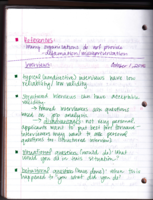 References:
many organizations do not provide
- defamation/misrepresentation
Interviews
typical (unstructured) interviews have low
reliability/low validity
Structured interviews can have acceptable
validity
→ broad interviews ask questions
based on job analysis
→ disadvantages: not very personal
Applicants want to put best foot forward
Interviewers may want to ask personal
questions in structured interviews
Situational question (would do): What
would you do in this situation?
Behavioral question (have done): When this
happened to you what did you do?